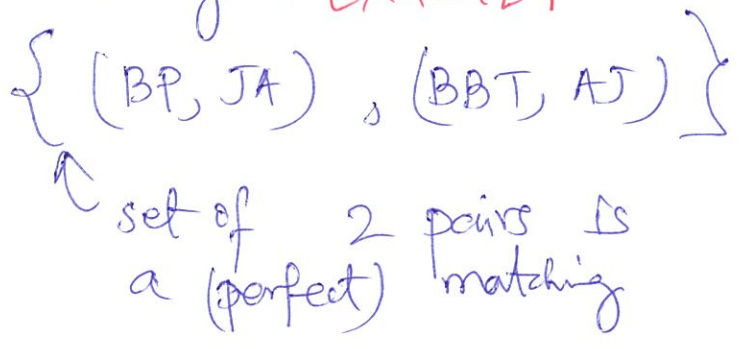 { (BP, JA) , (BBT, AJ) }
set of 2 pairs is
a (perfect) matching